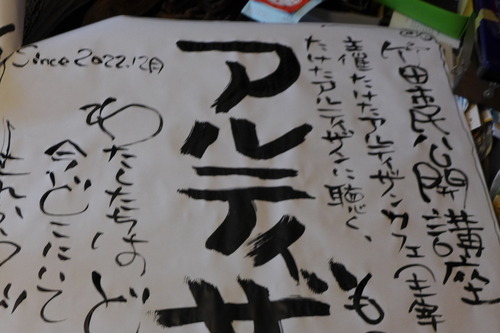 公開講座
主催たけだアルティザンカフェ(主宰
たけだアルティザンに聴く、
も
アルティザ
Since 2022.12月
わたしたちの ど
今どこにいて